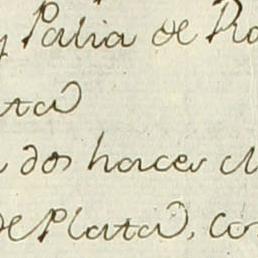 y Palia de Ra
ata
dos haces
de Plata, con